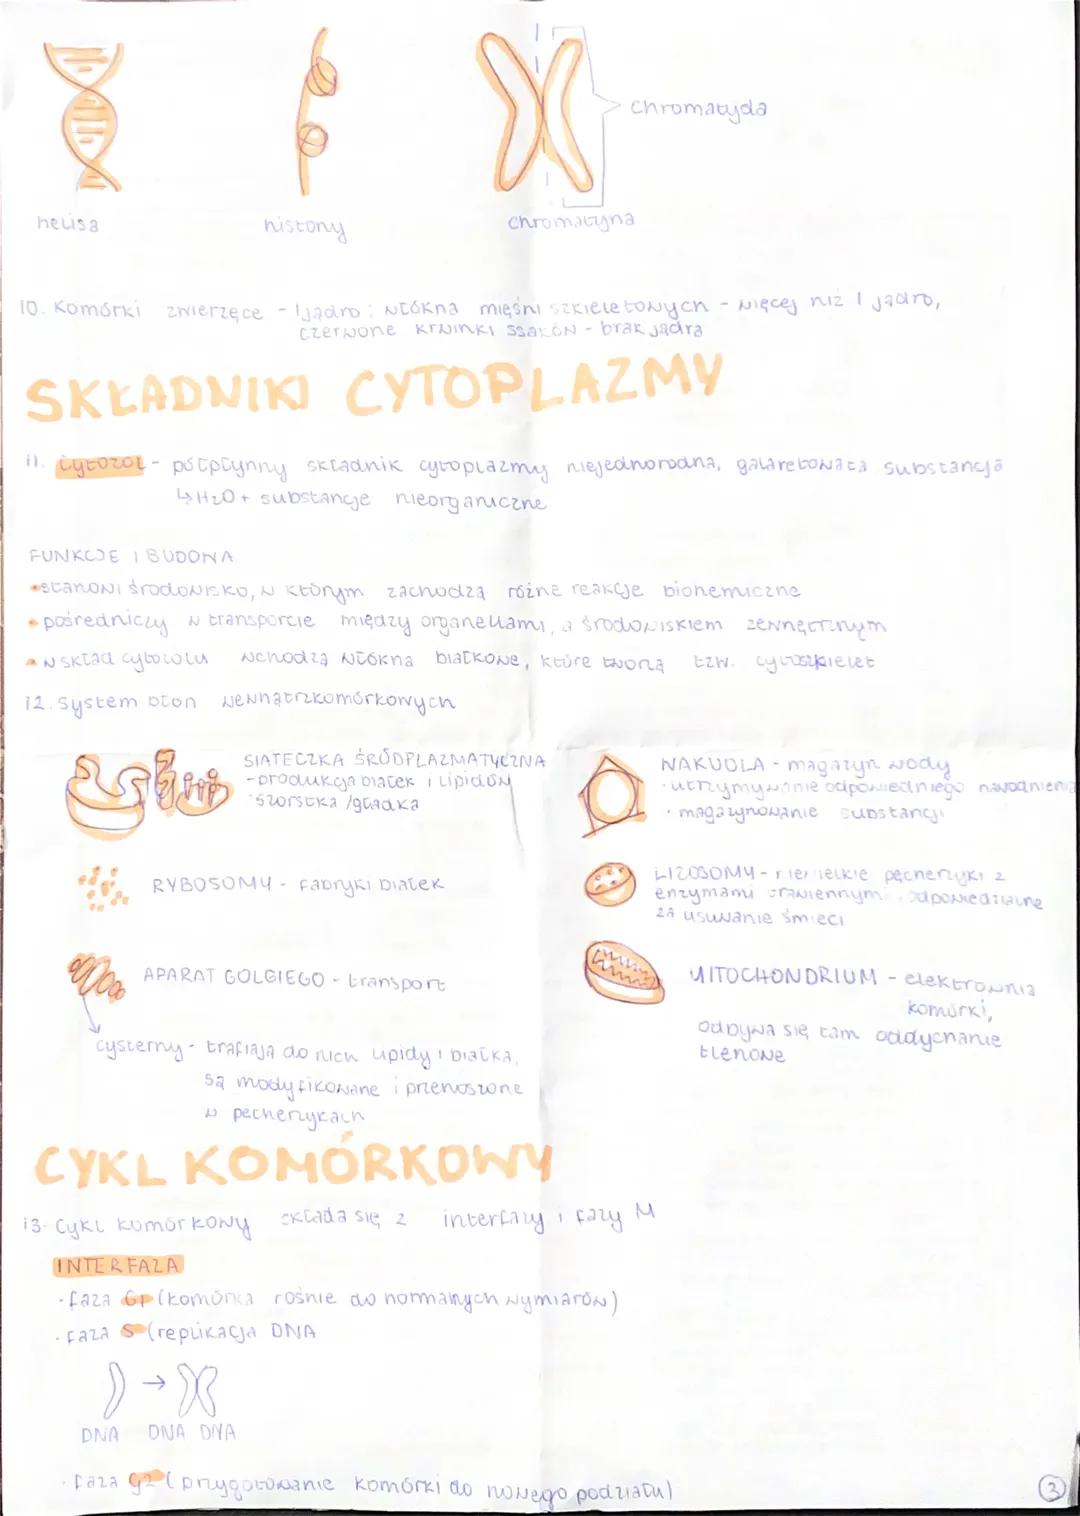 chromatyda
helisa
histony
chromatyna
10. Komórki zwierzęce - 1 jądro; włókna mięśni szkieletowych - więcej niż 1 jądro,
czerwone krwinki ssaków - brak jądra
SKŁADNIKI CYTOPLAZMY
11. Cytozol - półpłynny składnik cytoplazmy niejednorodna, galaretowata substancja
↳ H2O + substancje nieorganiczne
FUNKCJE I BUDOWA
•stanowi środowisko, w którym zachodzą różne reakcje biohemiczne
•pośredniczy w transporcie między organellami, a środowiskiem zewnętrznym
•w skład cytozolu wchodzą włókna białkowe, które tworzą tzw. cytoszkielet
12. System błon wewnątrzkomórkowych
SIATECZKA ŚRÓDPLAZMATYCZNA
-produkcja białek i lipidów
•szorstka /gładka
RYBOSOMY - fabryki białek
APARAT GOLGIEGO - transport
cysterny - trafiają do nich lipidy i białka,
są modyfikowane i przenoszone
w pęcherzykach
WAKUOLA - magazyn wody
•utrzymywanie odpowiedniego nawodnienia
•magazynowanie substancji
LIZOSOMY - niewielkie pęcherzyki z
enzymami trawiennymi, odpowiedzialne
za usuwanie śmieci
MITOCHONDRIUM - elektrownia
komórki,
odbywa się tam oddychanie
tlenowe
CYKL KOMÓRKOWY
13. Cykl komórkowy składa się z interfazy i fazy M
INTERFAZA
•faza G1 (komórka rośnie do normalnych wymiarów)
•faza S (replikacja DNA
→
DNA DNA DNA
•faza G2 (przygotowanie komórki do nowego podziału)
3